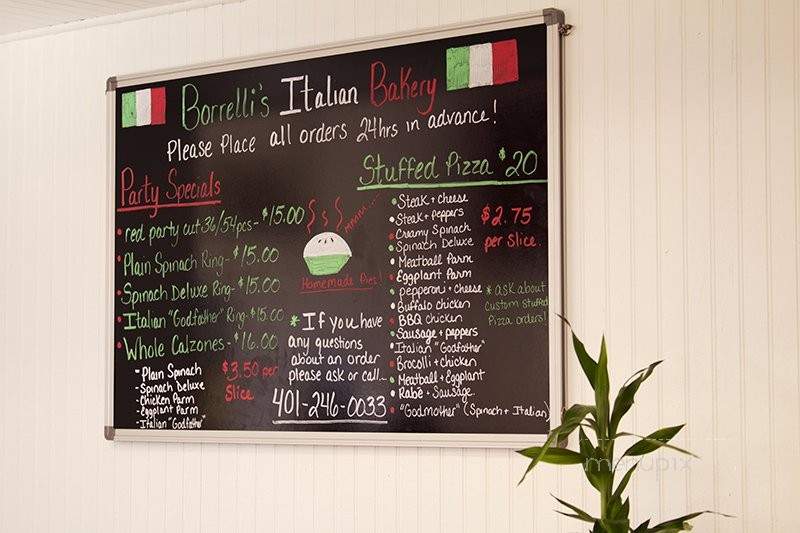 Borrelli's Italian Bakery
Please Place all orders 24hrs in advance!
Party Specials
• red party cut-36/54pcs- $15.00
• Plain Spinach Ring- $15.00
• Spinach Deluxe Ring- $15.00
• Italian "Godfather" Ring- $15.00
• Whole Calzones- $16.00
- Plain Spinach
- Spinach Deluxe
- Chicken Parm
- Eggplant Parm
- Italian "Godfather"
$3.50 per
Slice
mmmm...
Homemade Pies!
* If you have
any questions
about an order
please ask or call...
401-246-0033
Stuffed Pizza $20
• Steak + cheese
• Steak + Peppers
• Creamy Spinach
• Spinach Deluxe
• Meatball Parm
• Eggplant Parm
• pepperoni + cheese
• Buffalo chicken
• BBQ chicken
• Sausage + peppers
• Italian "Godfather"
• Brocolli + chicken
• Meatball + Eggplant
• Rabe + Sausage
• "Godmother" (Spinach + Italian)
$2.75
per slice.
* ask about
custom stuffed
Pizza orders!
menupix